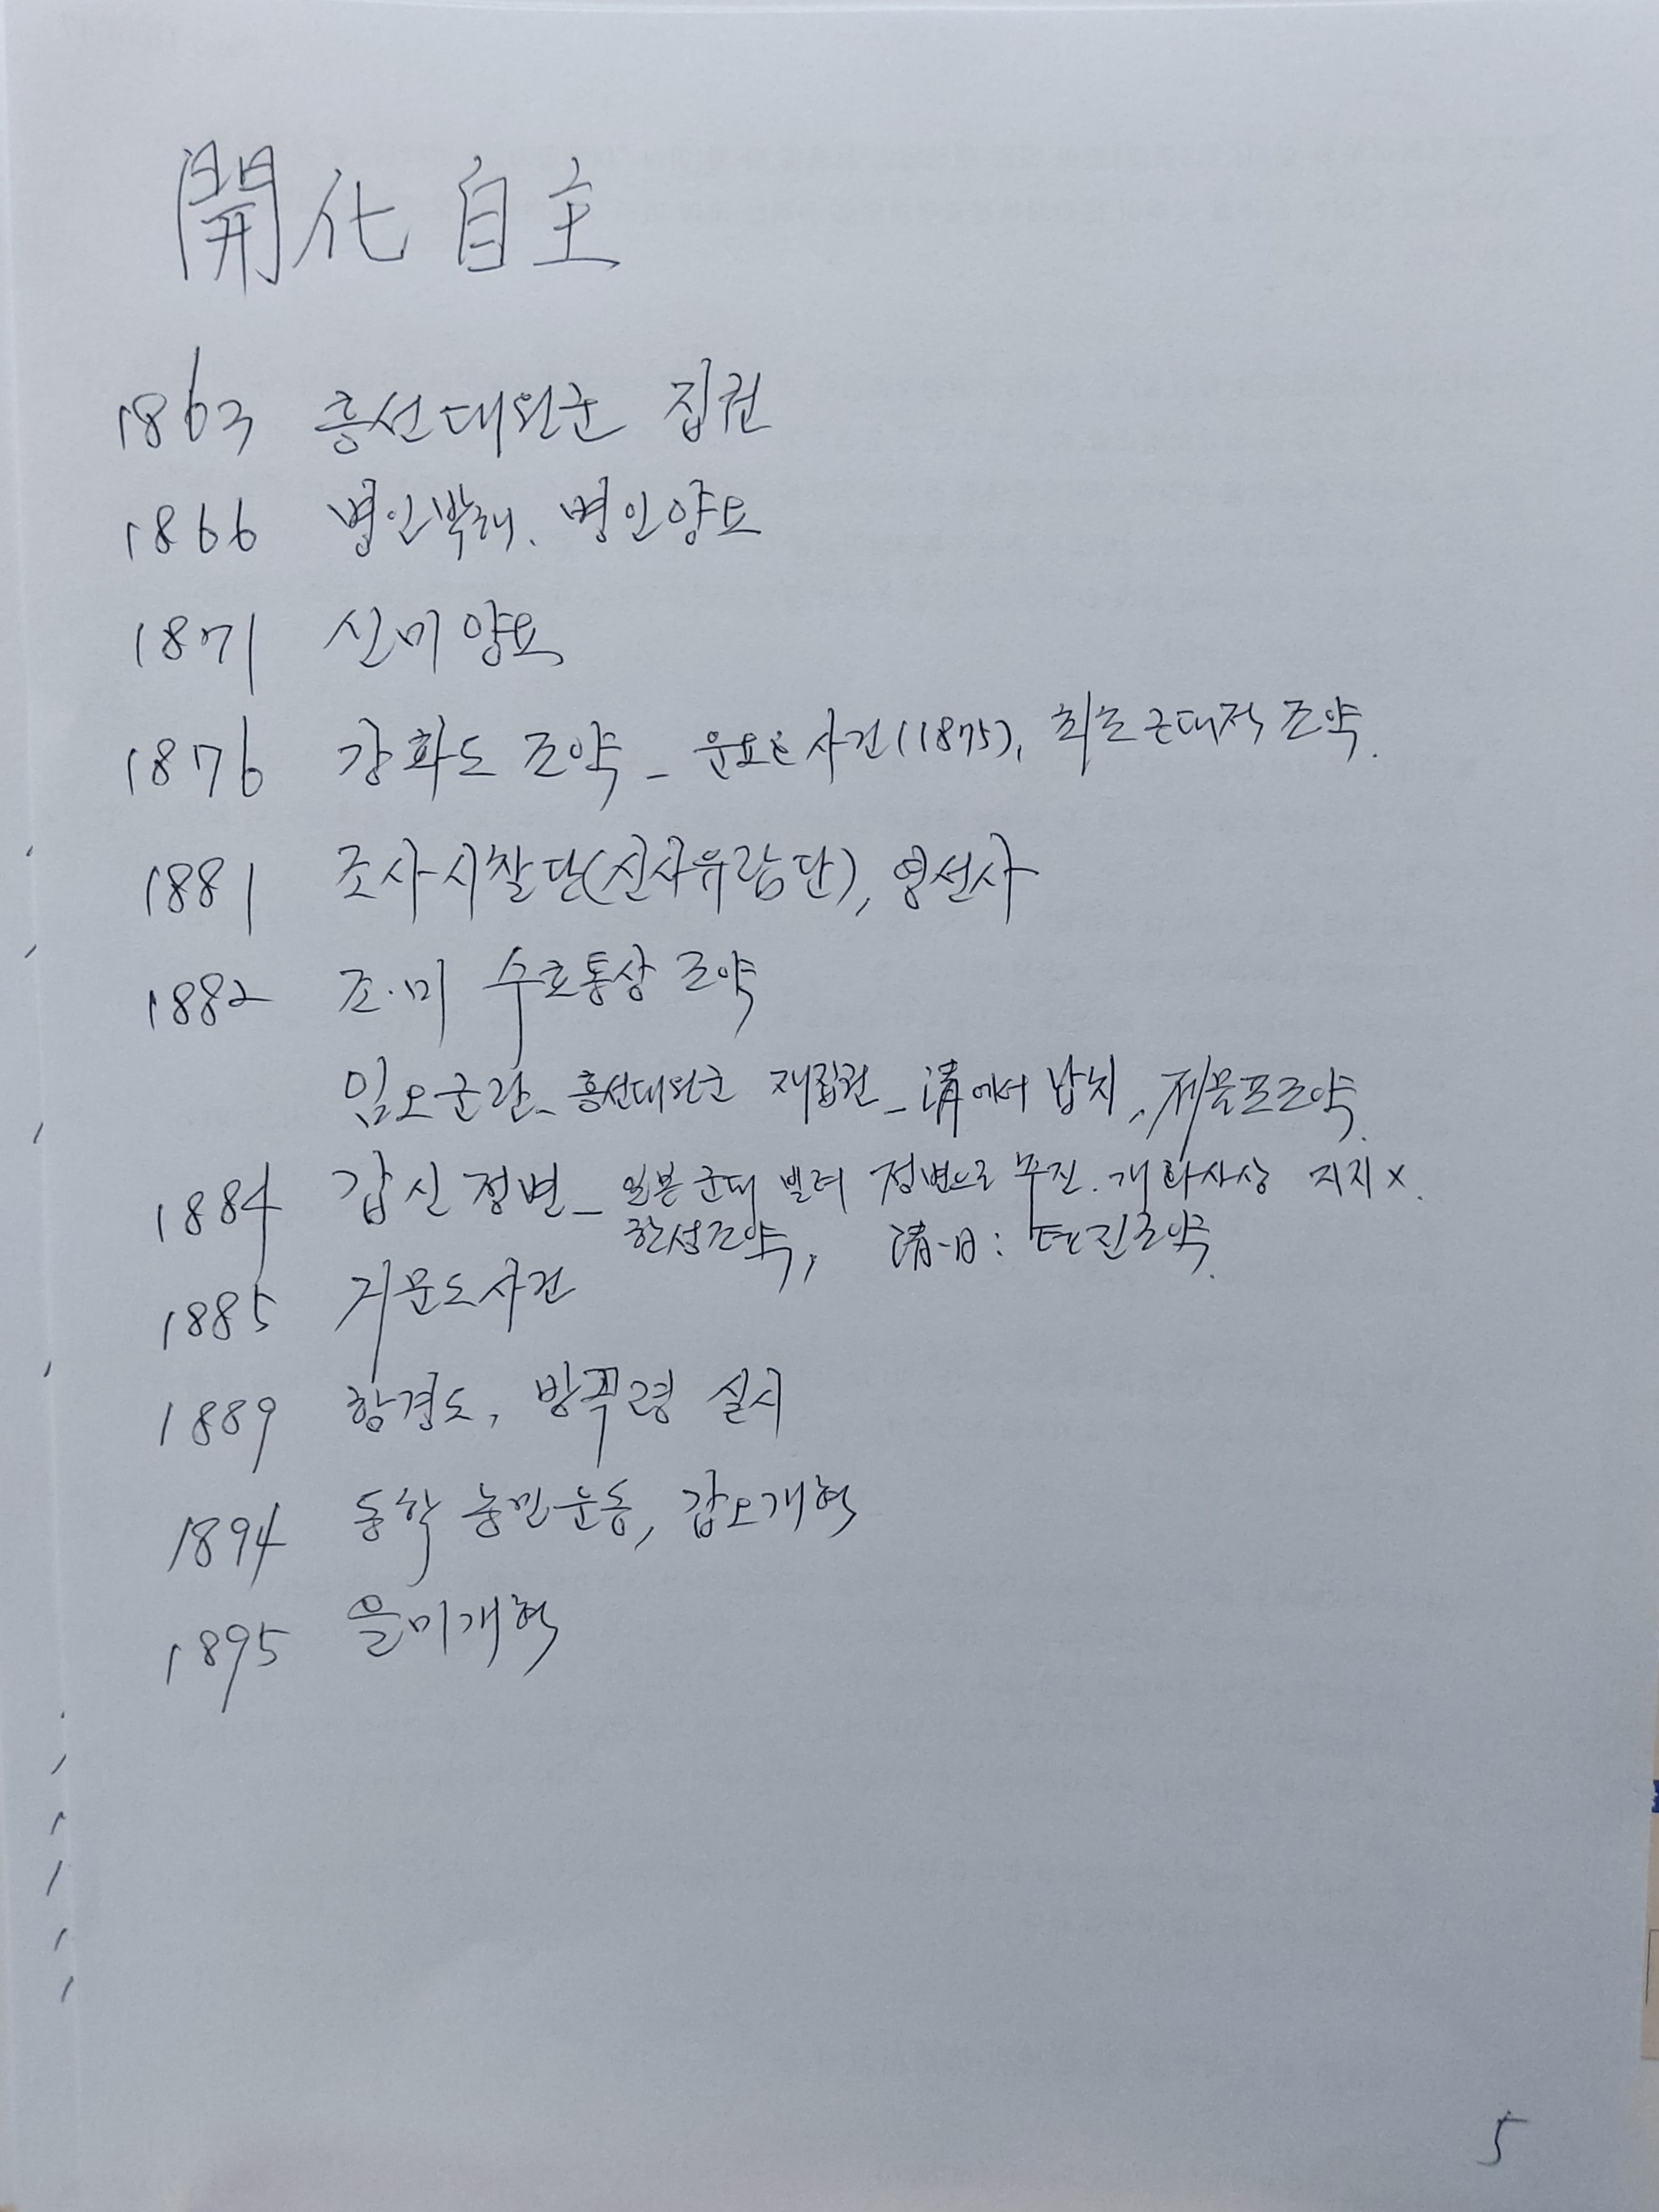 開化 自主
1863 흥선대원군 집권
1866 병인박해. 병인양요
1871 신미양요
1876 강화도 조약 - 운요호 사건(1875), 최초 근대적 조약.
1881 조사시찰단(신사유람단), 영선사
1882 조·미 수호통상 조약
임오군란 - 흥선대원군 재집권 - 淸에서 납치, 제물포조약.
1884 갑신정변 - 일본군대 빌려 정변으로 추진. 개화사상 지지 x.
한성조약, 淸-日: 텐진조약.
1885 거문도사건
1889 함경도, 방곡령 실시
1894 동학 농민운동, 갑오개혁
1895 을미개혁
5